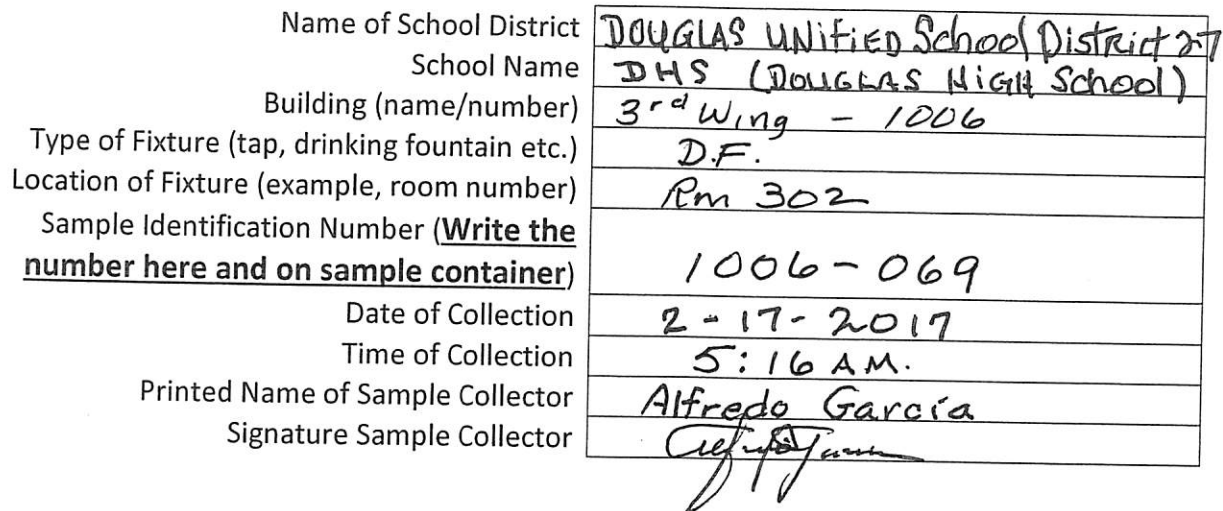 Name of School District DOUGLAS UNiFiED School District 27
School Name DHS (DOUGLAS HiGH School)
Building (name/number) 3rd Wing - 1006
Type of Fixture (tap, drinking fountain etc.) D.F.
Location of Fixture (example, room number) Rm 302
Sample Identification Number (Write the
number here and on sample container) 1006-069
Date of Collection 2-17-2017
Time of Collection 5:16 AM.
Printed Name of Sample Collector Alfredo García
Signature Sample Collector